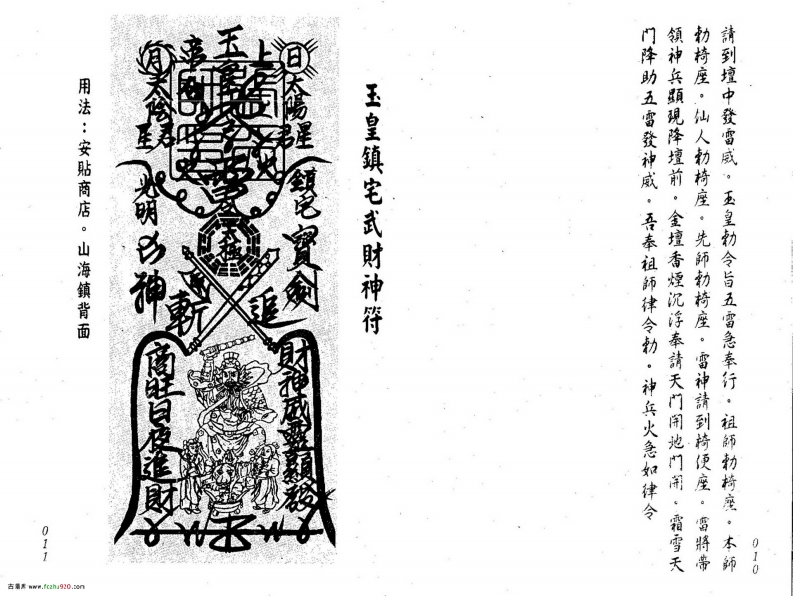 請到壇中發雷威。玉皇勅令旨五雷急奉行。祖師勅椅座。本師
勅椅座。仙人勅椅座。先師勅椅座。雷神請到椅便座。雷將帶
領神兵顯現降壇前。金壇香煙沉浮奉請天門開地門開。霜雪天
門降助五雷發神威。吾奉祖師律令勅。神兵火急如律令
010
玉皇鎮宅武財神符
日太陽星君
月太陰星君
玉皇
上
鎮宅寶劍
光明
太極
追
斬
凶神
財神威靈顯設
商旺日夜進財
用法：安貼商店。山海鎮背面
011
古籍库 www.fczhu920.com